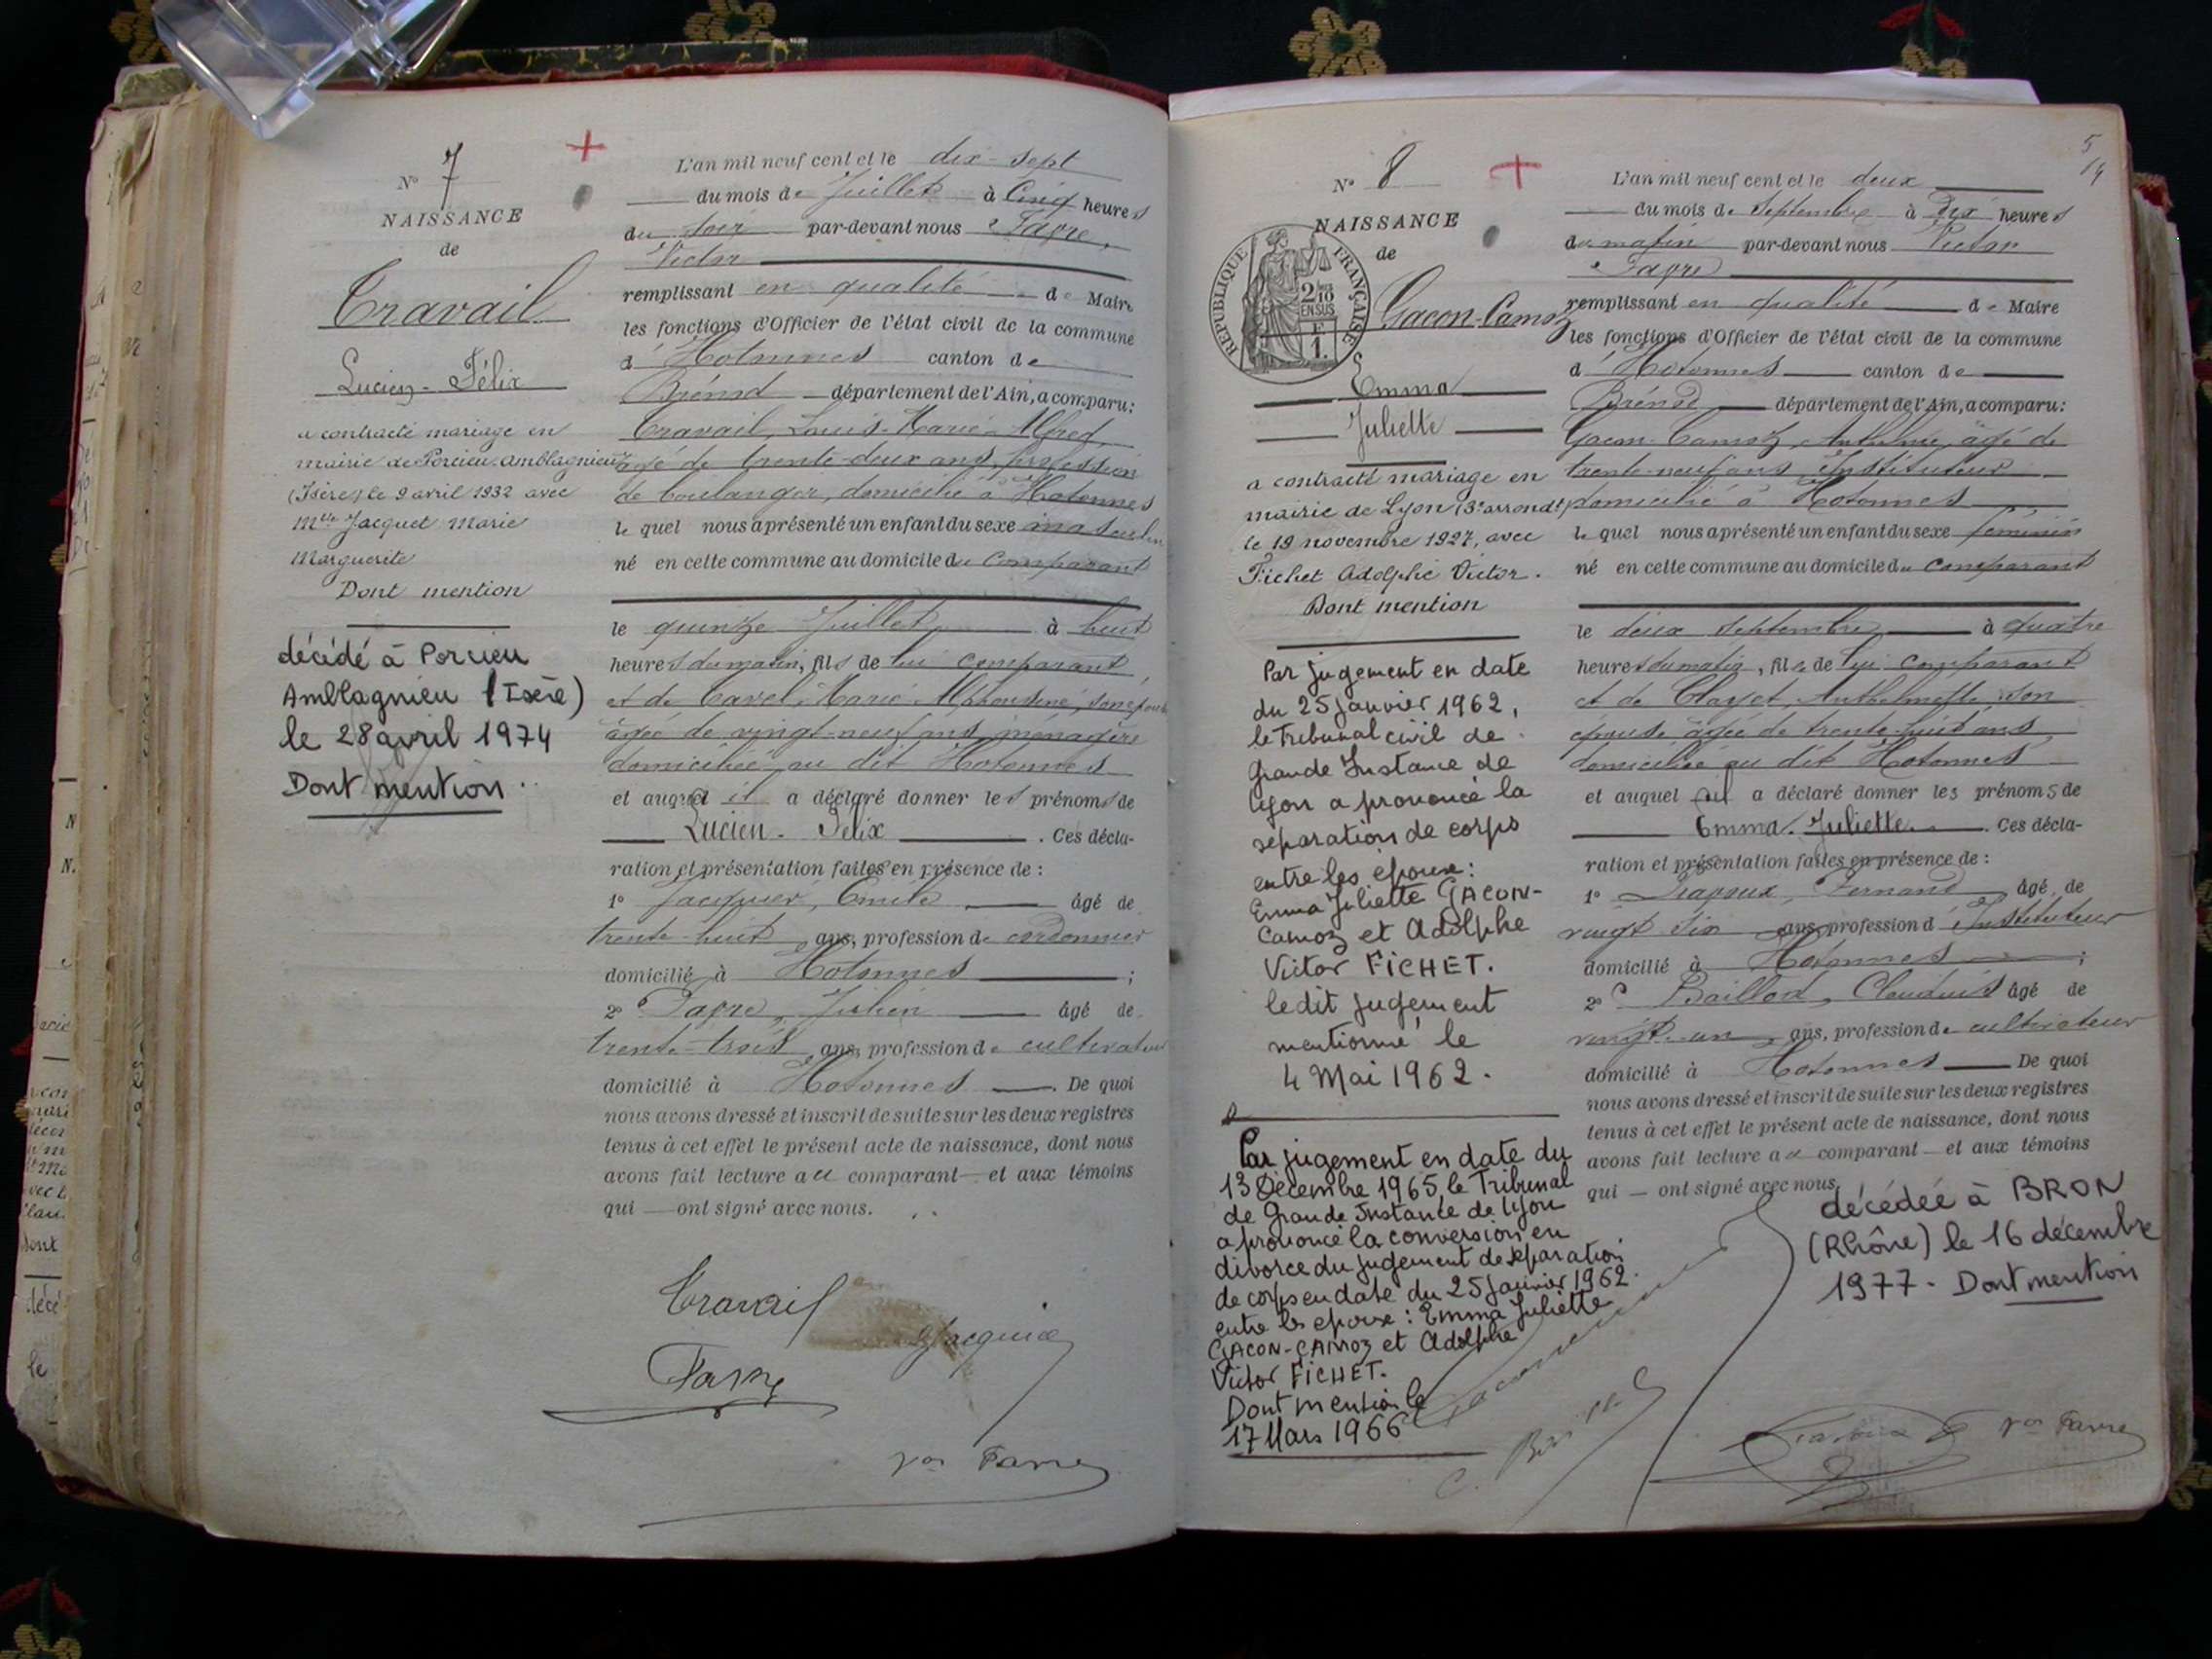 N° 7
NAISSANCE
de
Travail
Lucien-Félix
a contracté mariage en
mairie de Porcieu-Amblagnieu
(Isère) le 9 avril 1932 avec
Mlle Jacquet Marie
Marguerite
Dont mention
décédé à Porcieu
Amblagnieu (Isère)
le 28 avril 1974
Dont mention
L'an mil neuf cent et le dix-sept
du mois de Juillet à Cinq heures
du soir par-devant nous Favre,
Victor
remplissant en qualité de Maire
les fonctions d'Officier de l'état civil de la commune
d' Hotonnes canton de
Brénod département de l'Ain, a comparu:
Travail, Louis-Marie-Alfred,
âgé de trente-deux ans, profession
de boulanger, domicilié à Hotonnes
le quel nous a présenté un enfant du sexe masculin
né en cette commune au domicile du comparant
le quinze Juillet à huit
heures du matin, fils de lui comparant
et de Cavel, Marie Alphonsine, son épouse
âgée de vingt-neuf ans, ménagère
domiciliée au dit Hotonnes
et auquel il a déclaré donner les prénoms de
Lucien-Félix. Ces décla-
ration et présentation faites en présence de :
1° Jacquier, Emile âgé de
trente-huit ans, profession de cordonnier
domicilié à Hotonnes ;
2° Favre, Julien âgé de
trente-trois ans, profession de cultivateur
domicilié à Hotonnes. De quoi
nous avons dressé et inscrit de suite sur les deux registres
tenus à cet effet le présent acte de naissance, dont nous
avons fait lecture au comparant et aux témoins
qui ont signé avec nous.
Travail
Jacquier
Favre
Vor Favre
5
14
N° 8
NAISSANCE
de
RÉPUBLIQUE FRANÇAISE
2/10
EN SUS
F
1.
Gacon-Camoz
Emma
Juliette
a contracté mariage en
mairie de Lyon (3e arrondt)
le 19 novembre 1927, avec
Fichet Adolphe Victor.
Dont mention
Par jugement en date
du 25 janvier 1962,
le Tribunal civil de
Grande Instance de
Lyon a prononcé la
séparation de corps
entre les époux:
Emma Juliette GACON-
Camoz et Adolphe
Victor FICHET.
le dit jugement
mentionné le
4 Mai 1962.
Par jugement en date du
13 Décembre 1965, le Tribunal
de Grande Instance de Lyon
a prononcé la conversion en
divorce du jugement de séparation
de corps en date du 25 janvier 1962
entre les époux : Emma Juliette
GACON-CAMOZ et Adolphe
Victor FICHET.
Dont mention le
17 Mars 1966
L'an mil neuf cent et le deux
du mois de Septembre à Dix heures
du matin par-devant nous Victor
Favre
remplissant en qualité de Maire
les fonctions d'Officier de l'état civil de la commune
d' Hotonnes canton de
Brénod département de l'Ain, a comparu:
Gacon-Camoz, Anthelme, âgé de
trente-neuf ans, Instituteur
domicilié à Hotonnes
le quel nous a présenté un enfant du sexe féminin
né en cette commune au domicile du comparant
le deux septembre à quatre
heures du matin, fille de lui comparant
et de Clayet, Anthelmette son
épouse âgée de trente-huit ans
domiciliée au dit Hotonnes
et auquel il a déclaré donner les prénoms de
Emma-Juliette. Ces décla-
ration et présentation faites en présence de :
1° Fernand âgé de
vingt six ans, profession d'Instituteur
domicilié à Hotonnes ;
2° Baillod, Claudius âgé de
vingt-un ans, profession de cultivateur
domicilié à Hotonnes De quoi
nous avons dressé et inscrit de suite sur les deux registres
tenus à cet effet le présent acte de naissance, dont nous
avons fait lecture au comparant et aux témoins
qui ont signé avec nous.
décédée à BRON
(Rhône) le 16 décembre
1977. Dont mention
Vor Favre